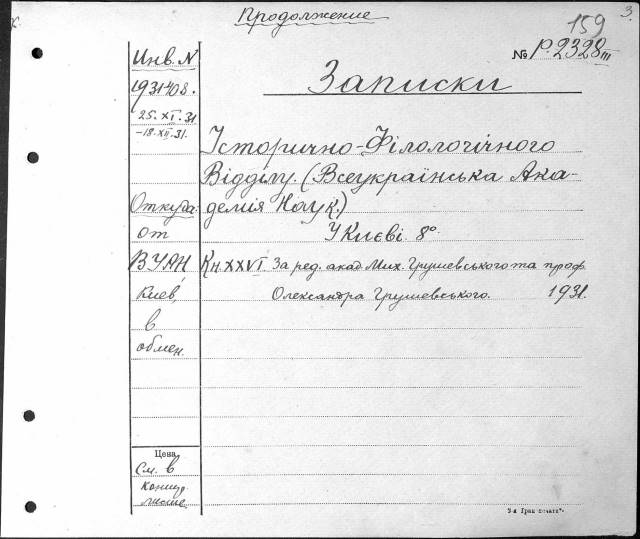 Продолжение
3.
159
№ Р.2328 III
Инв. N
1931408.
25.XI.31
-18.XII.31.
Откуда:
от
ВУАН,
Киев,
в
обмен.
Цена
См. в
Записки
Історично-Філологічного
Відділу. (Всеукраїнська Ака-
демія Наук.)
У Києві. 8°.
Кн. XXVI. За ред. акад. Мих. Грушевського та проф.
Олександра Грушевського. 1931.